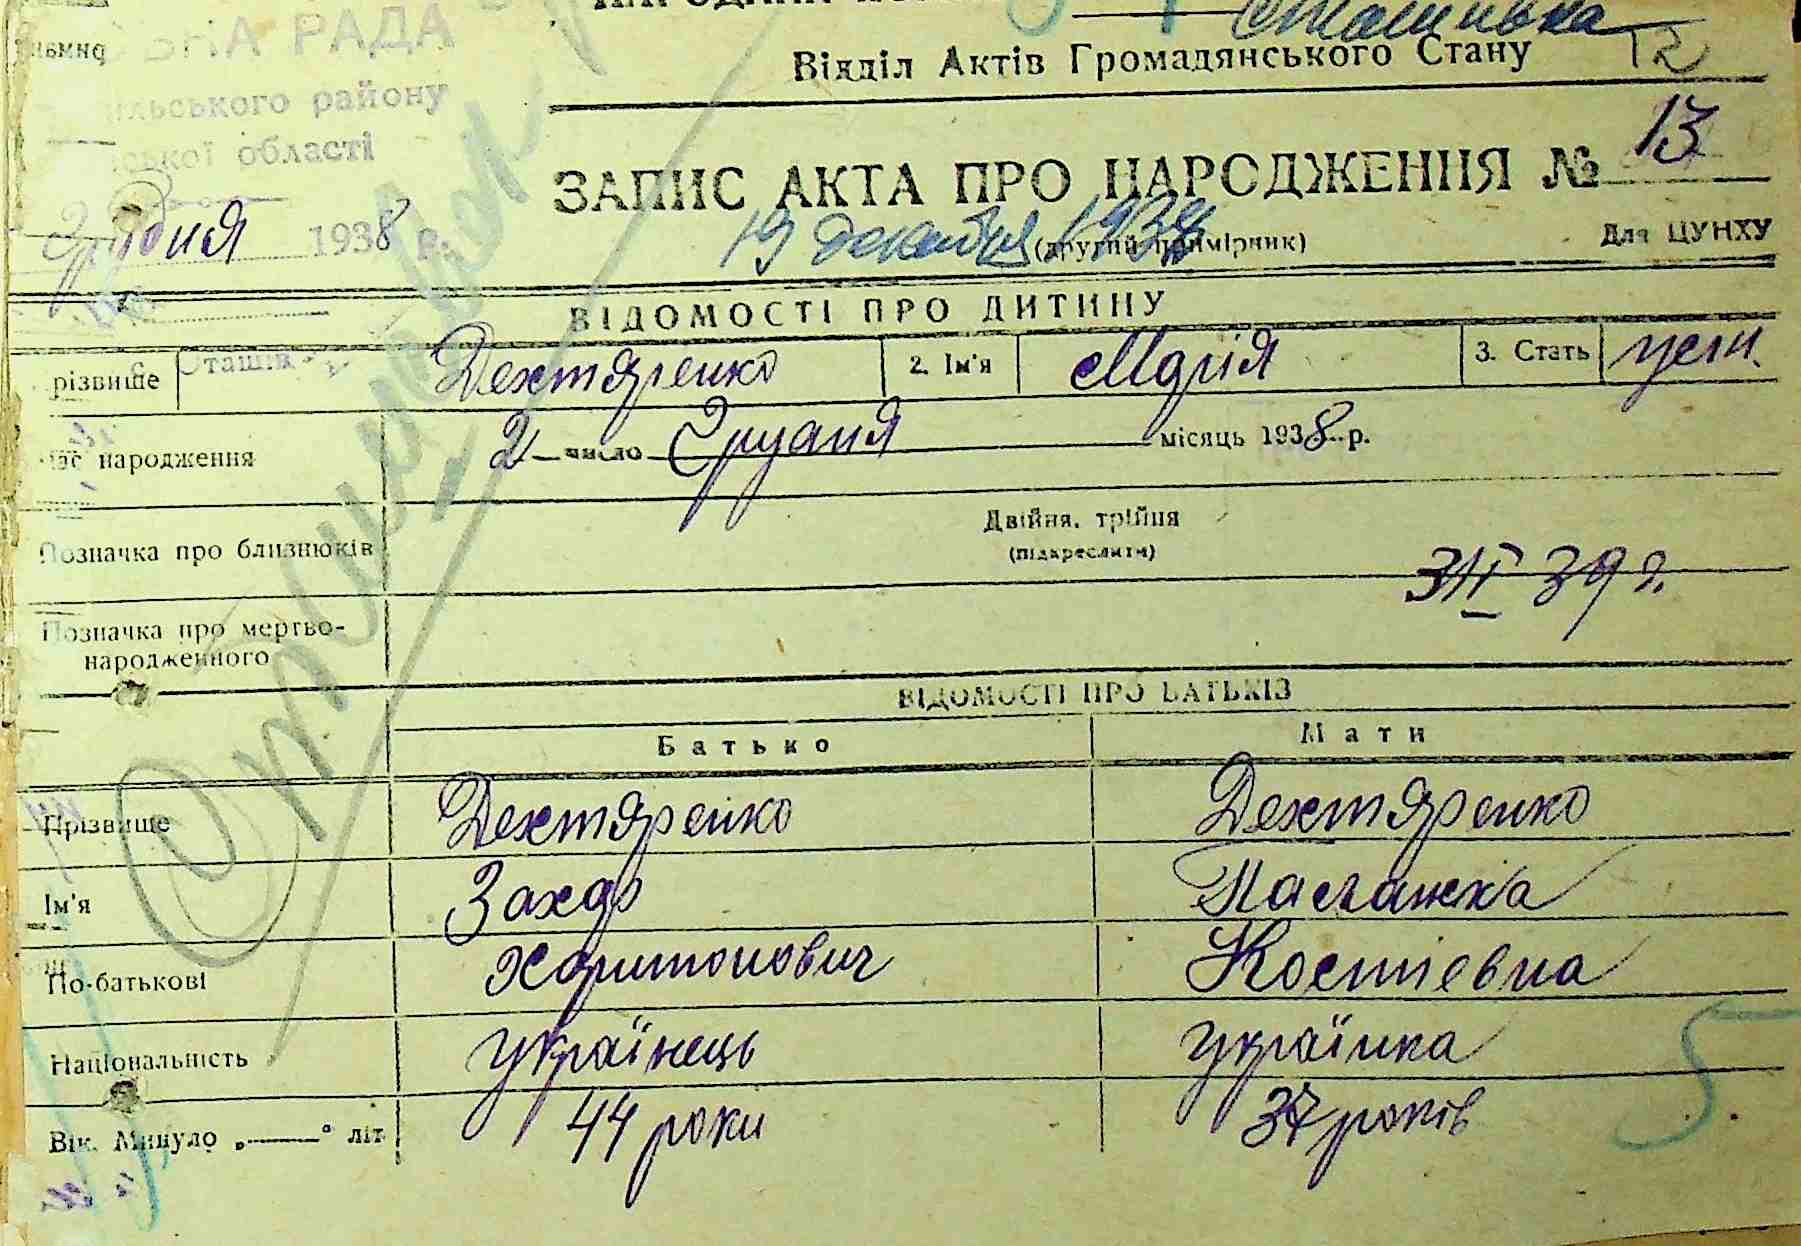 Сташивка
12
Відділ Актів Громадянського Стану
РАДА
району
області
ЗАПИС АКТА ПРО НАРОДЖЕННЯ № 13
Грудня 1938 р.
19 декабря 1938
(другий примірник)
Для ЦУНХУ
ВІДОМОСТІ ПРО ДИТИНУ
різвище Дехтяренко 2. Ім'я Марія 3. Стать
народження 2 число Грудня місяць 1938 р.
Позначка про близнюків
Двійня, трійня
(підкреслити)
39 г.
Позначка про мертво-
народженного
ВІДОМОСТІ ПРО БАТЬКІВ
Батько Мати
Прізвище Дехтяренко Дехтяренко
Ім'я Захар
По-батькові Харитонович Костіевна
Національність Українець Українка
Вік. Минуло „——" літ 44 роки 37 років
5